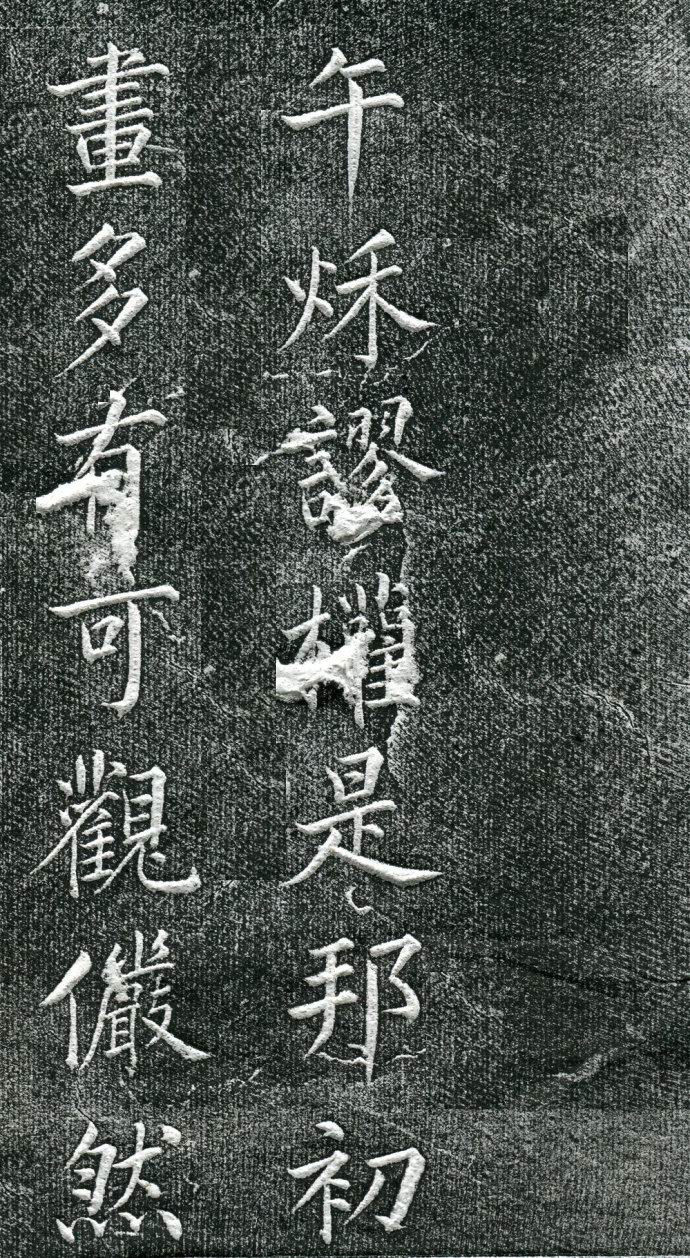 午秌謬權是邦初
畫多有可觀儼然